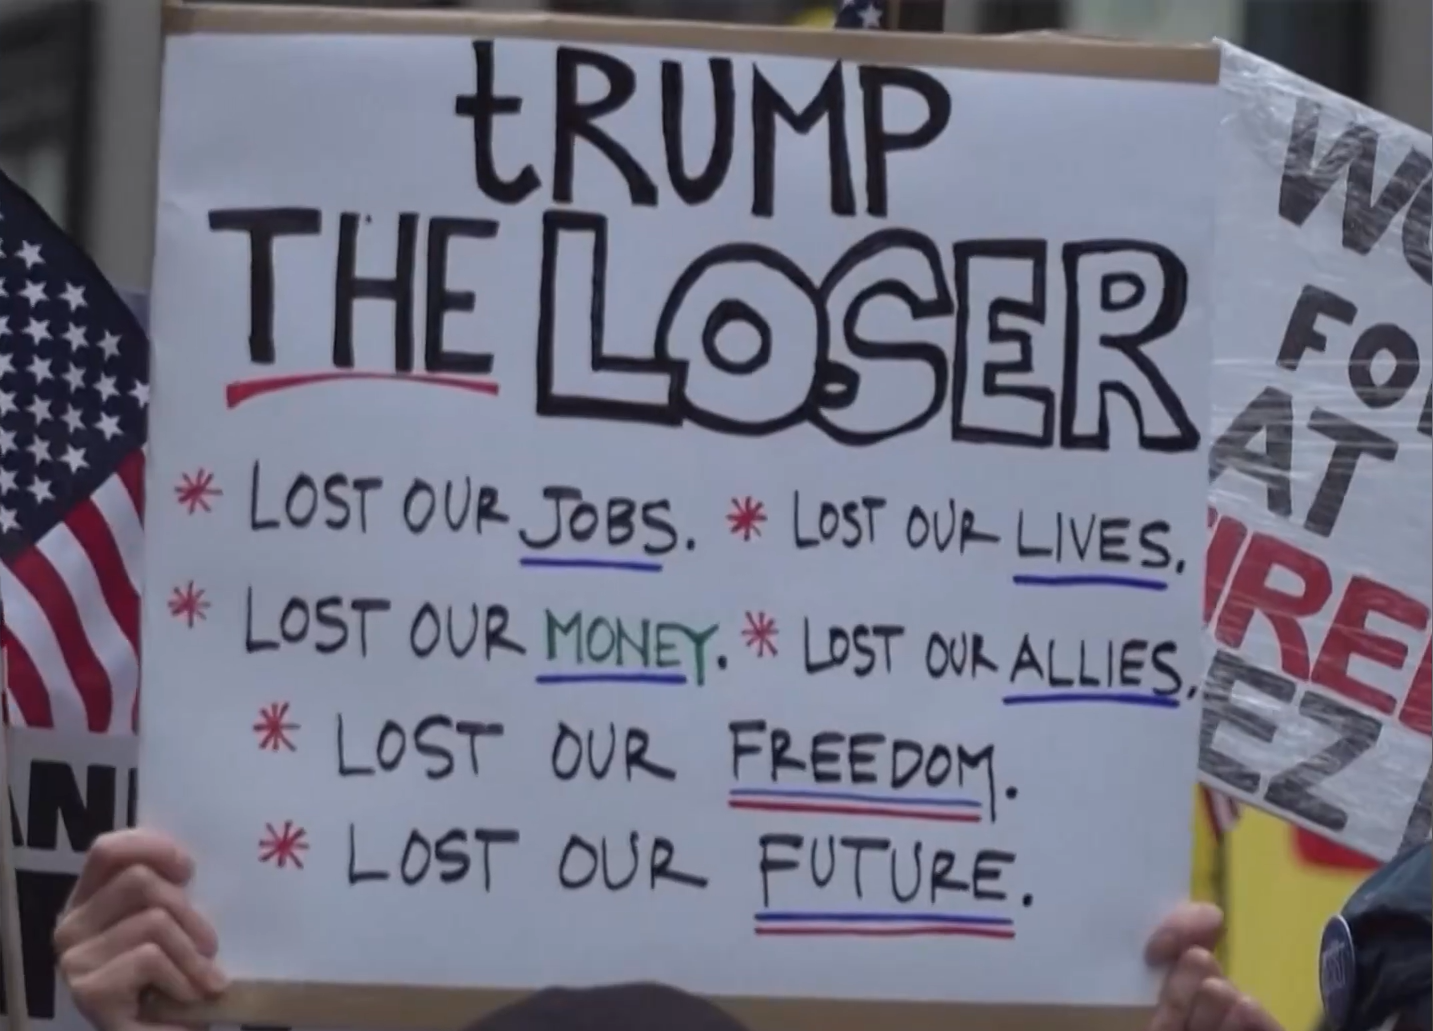 tRUMP
THE LOSER
* LOST OUR JOBS. * LOST OUR LIVES.
* LOST OUR MONEY. * LOST OUR ALLIES.
* LOST OUR FREEDOM.
* LOST OUR FUTURE.
AT
EZ